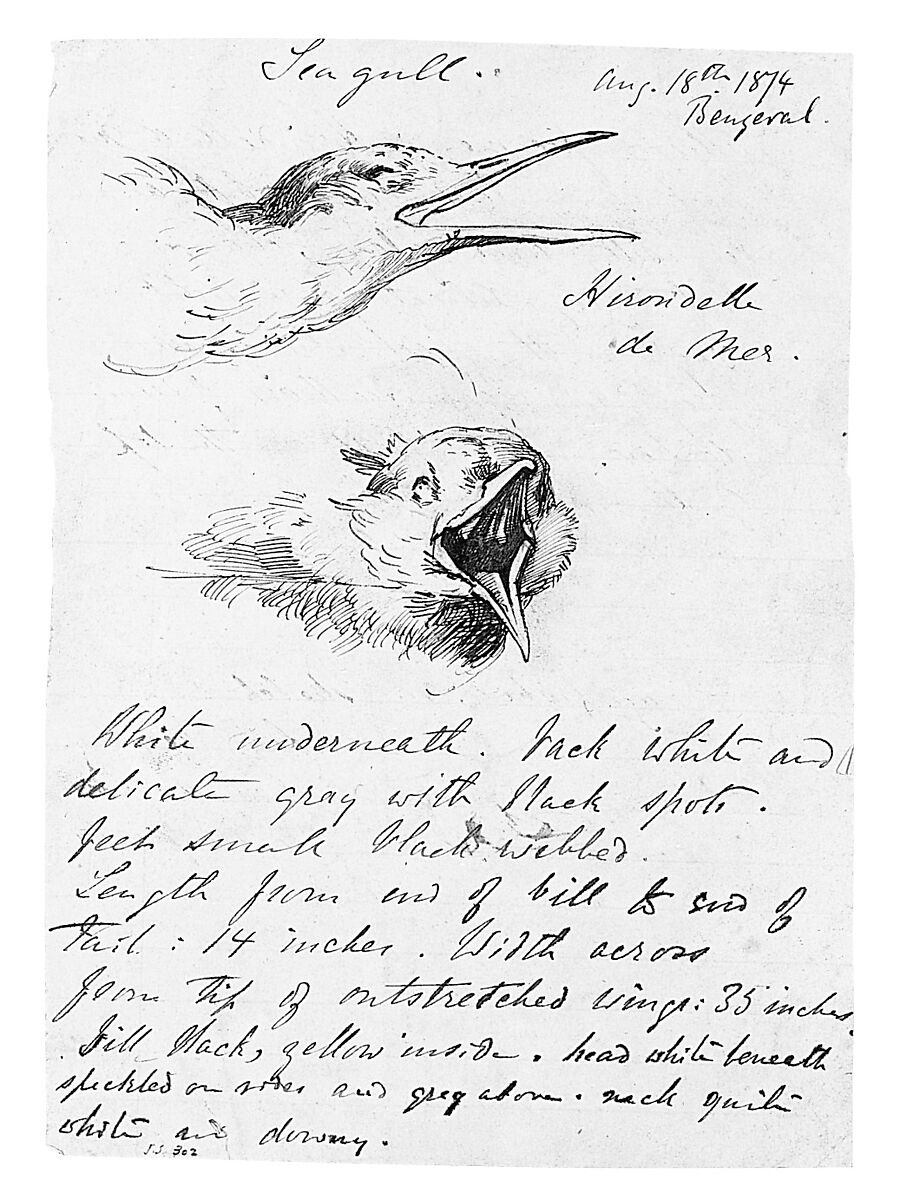 Sea gull.
Aug. 18th 1874
Benzeval.
Hirondelle
de Mer.
White underneath. Back white and
delicate gray with black spots.
feet small black webbed.
Length from end of bill to end of
Tail: 14 inches. Width across
from tip of outstretched wings: 35 inches.
Bill black, yellow inside. head white beneath
speckled on sides and grey above. neck quite
white and downy.
S.S. 302